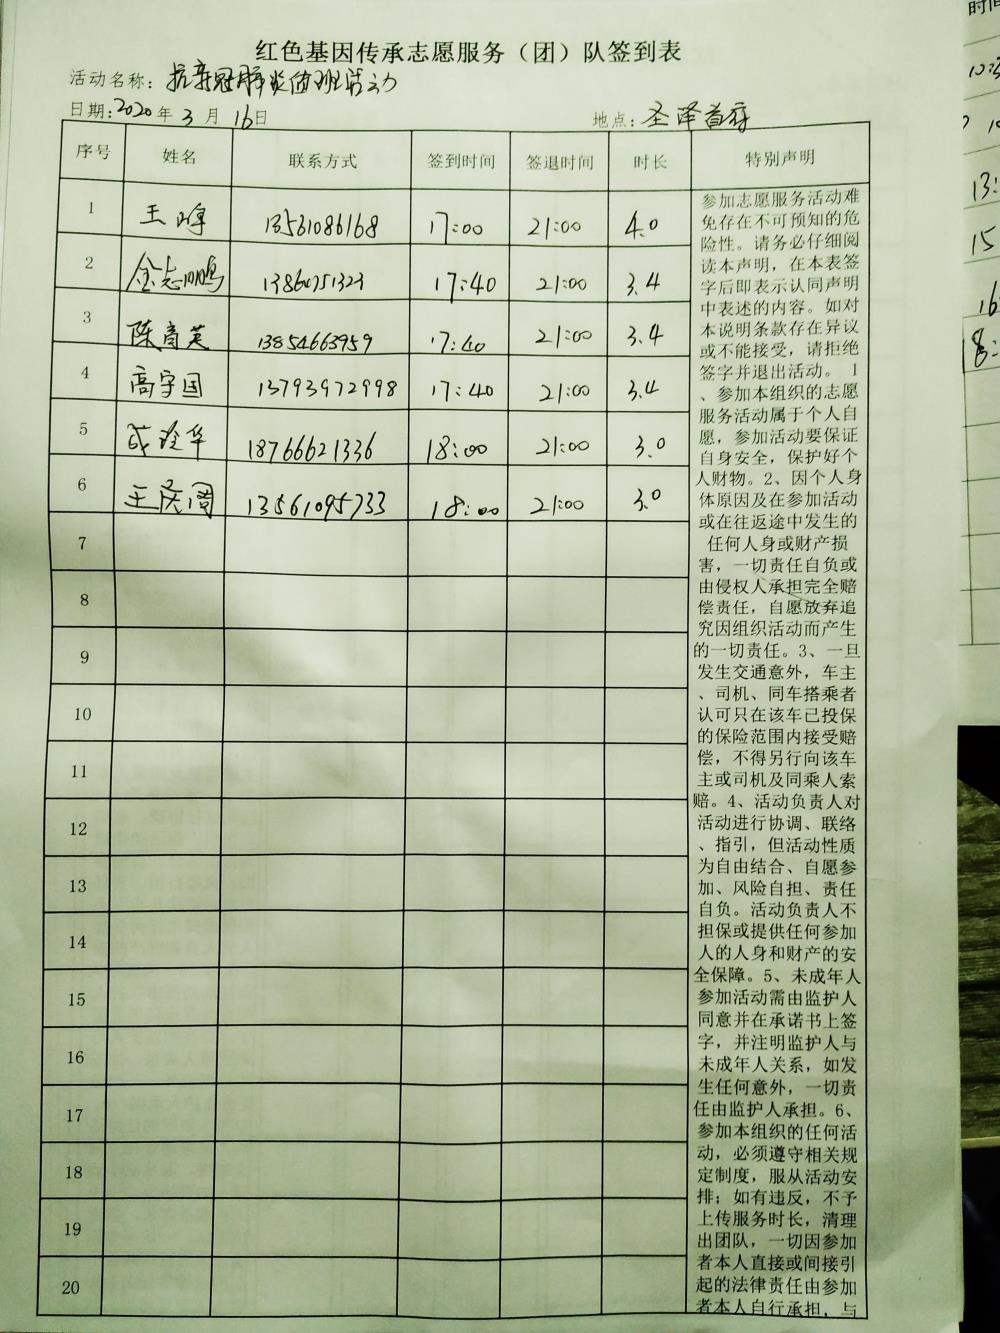 红色基因传承志愿服务（团）队签到表
活动名称：抗新冠肺炎值班活动
日期：2020年3月16日 地点：圣泽首府
序号 姓名 联系方式 签到时间 签退时间 时长 特别声明
1 王峰 13561086168 17:00 21:00 4.0
2 金志鹏 13860751323 17:40 21:00 3.4
3 陈育英 13854663959 17:40 21:00 3.4
4 高守国 13793972998 17:40 21:00 3.4
5 成玲华 18766621336 18:00 21:00 3.0
6 王庆周 13561095733 18:00 21:00 3.0
7
8
9
10
11
12
13
14
15
16
17
18
19
20
参加志愿服务活动难
免存在不可预知的危
险性。请务必仔细阅
读本声明，在本表签
字后即表示认同声明
中表述的内容。如对
本说明条款存在异议
或不能接受，请拒绝
签字并退出活动。 1
、参加本组织的志愿
服务活动属于个人自
愿，参加活动要保证
自身安全，保护好个
人财物。2、因个人身
体原因及在参加活动
或在往返途中发生的
任何人身或财产损
害，一切责任自负或
由侵权人承担完全赔
偿责任，自愿放弃追
究因组织活动而产生
的一切责任。3、一旦
发生交通意外，车主
、司机、同车搭乘者
认可只在该车已投保
的保险范围内接受赔
偿，不得另行向该车
主或司机及同乘人索
赔。4、活动负责人对
活动进行协调、联络
、指引，但活动性质
为自由结合、自愿参
加、风险自担、责任
自负。活动负责人不
担保或提供任何参加
人的人身和财产的安
全保障。5、未成年人
参加活动需由监护人
同意并在承诺书上签
字，并注明监护人与
未成年人关系，如发
生任何意外，一切责
任由监护人承担。6、
参加本组织的任何活
动，必须遵守相关规
定制度，服从活动安
排；如有违反，不予
上传服务时长，清理
出团队，一切因参加
者本人直接或间接引
起的法律责任由参加
者本人自行承担，与